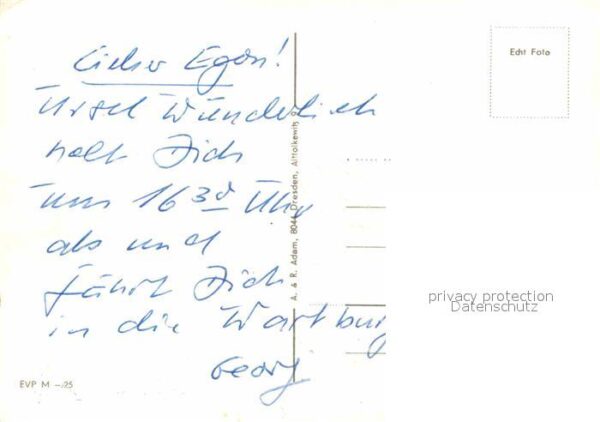 Lieber Egon!
Ursel Wunderlich
holt Dich
um 16 30 Uhr
ab und
fährt Dich
in die Wartburg
Georg
EVP M -,25
A. & R. Adam, 8044 Dresden, Alttolkewitz
Echt Foto
privacy protection
Datenschutz